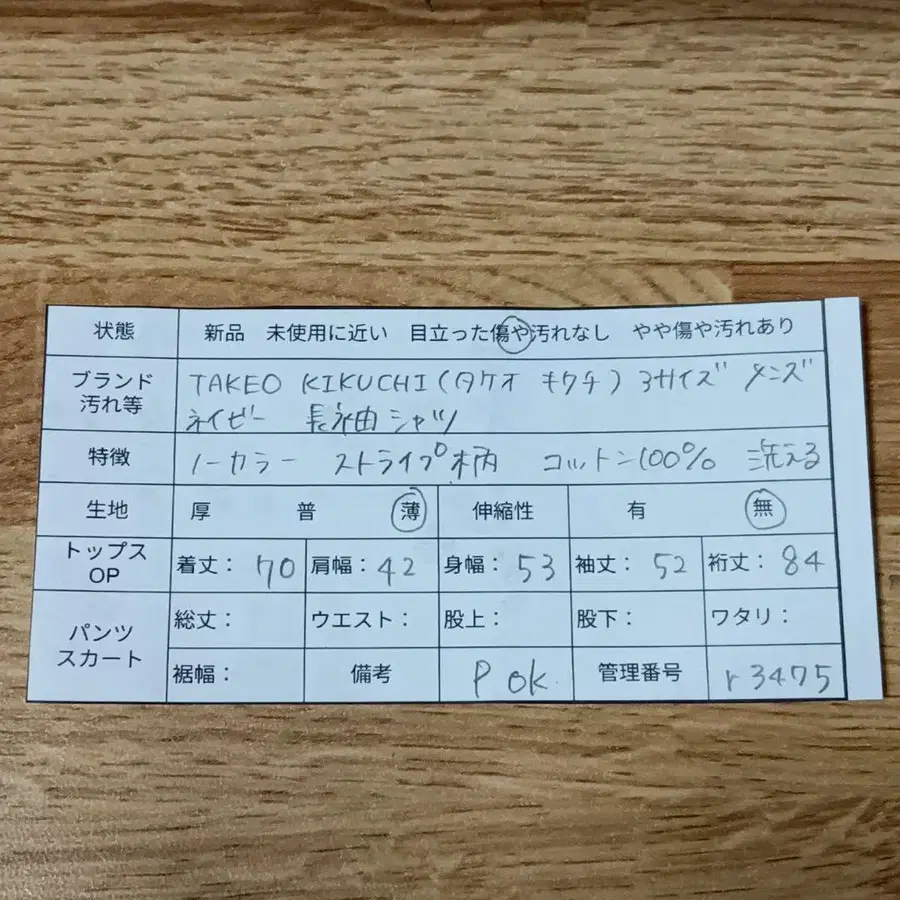 状態 新品 未使用に近い 目立った傷や汚れなし やや傷や汚れあり
ブランド 汚れ等 TAKEO KIKUCHI(タケオ キクチ) 3サイズ メンズ
ネイビー 長袖シャツ
特徴 ノーカラー ストライプ柄 コットン100% 洗える
生地 厚 普 薄 伸縮性 有 無
トップス OP 着丈: 70 肩幅: 42 身幅: 53 袖丈: 52 裄丈: 84
パンツ スカート 総丈: ウエスト: 股上: 股下: ワタリ:
裾幅: 備考 P ok 管理番号 r3475